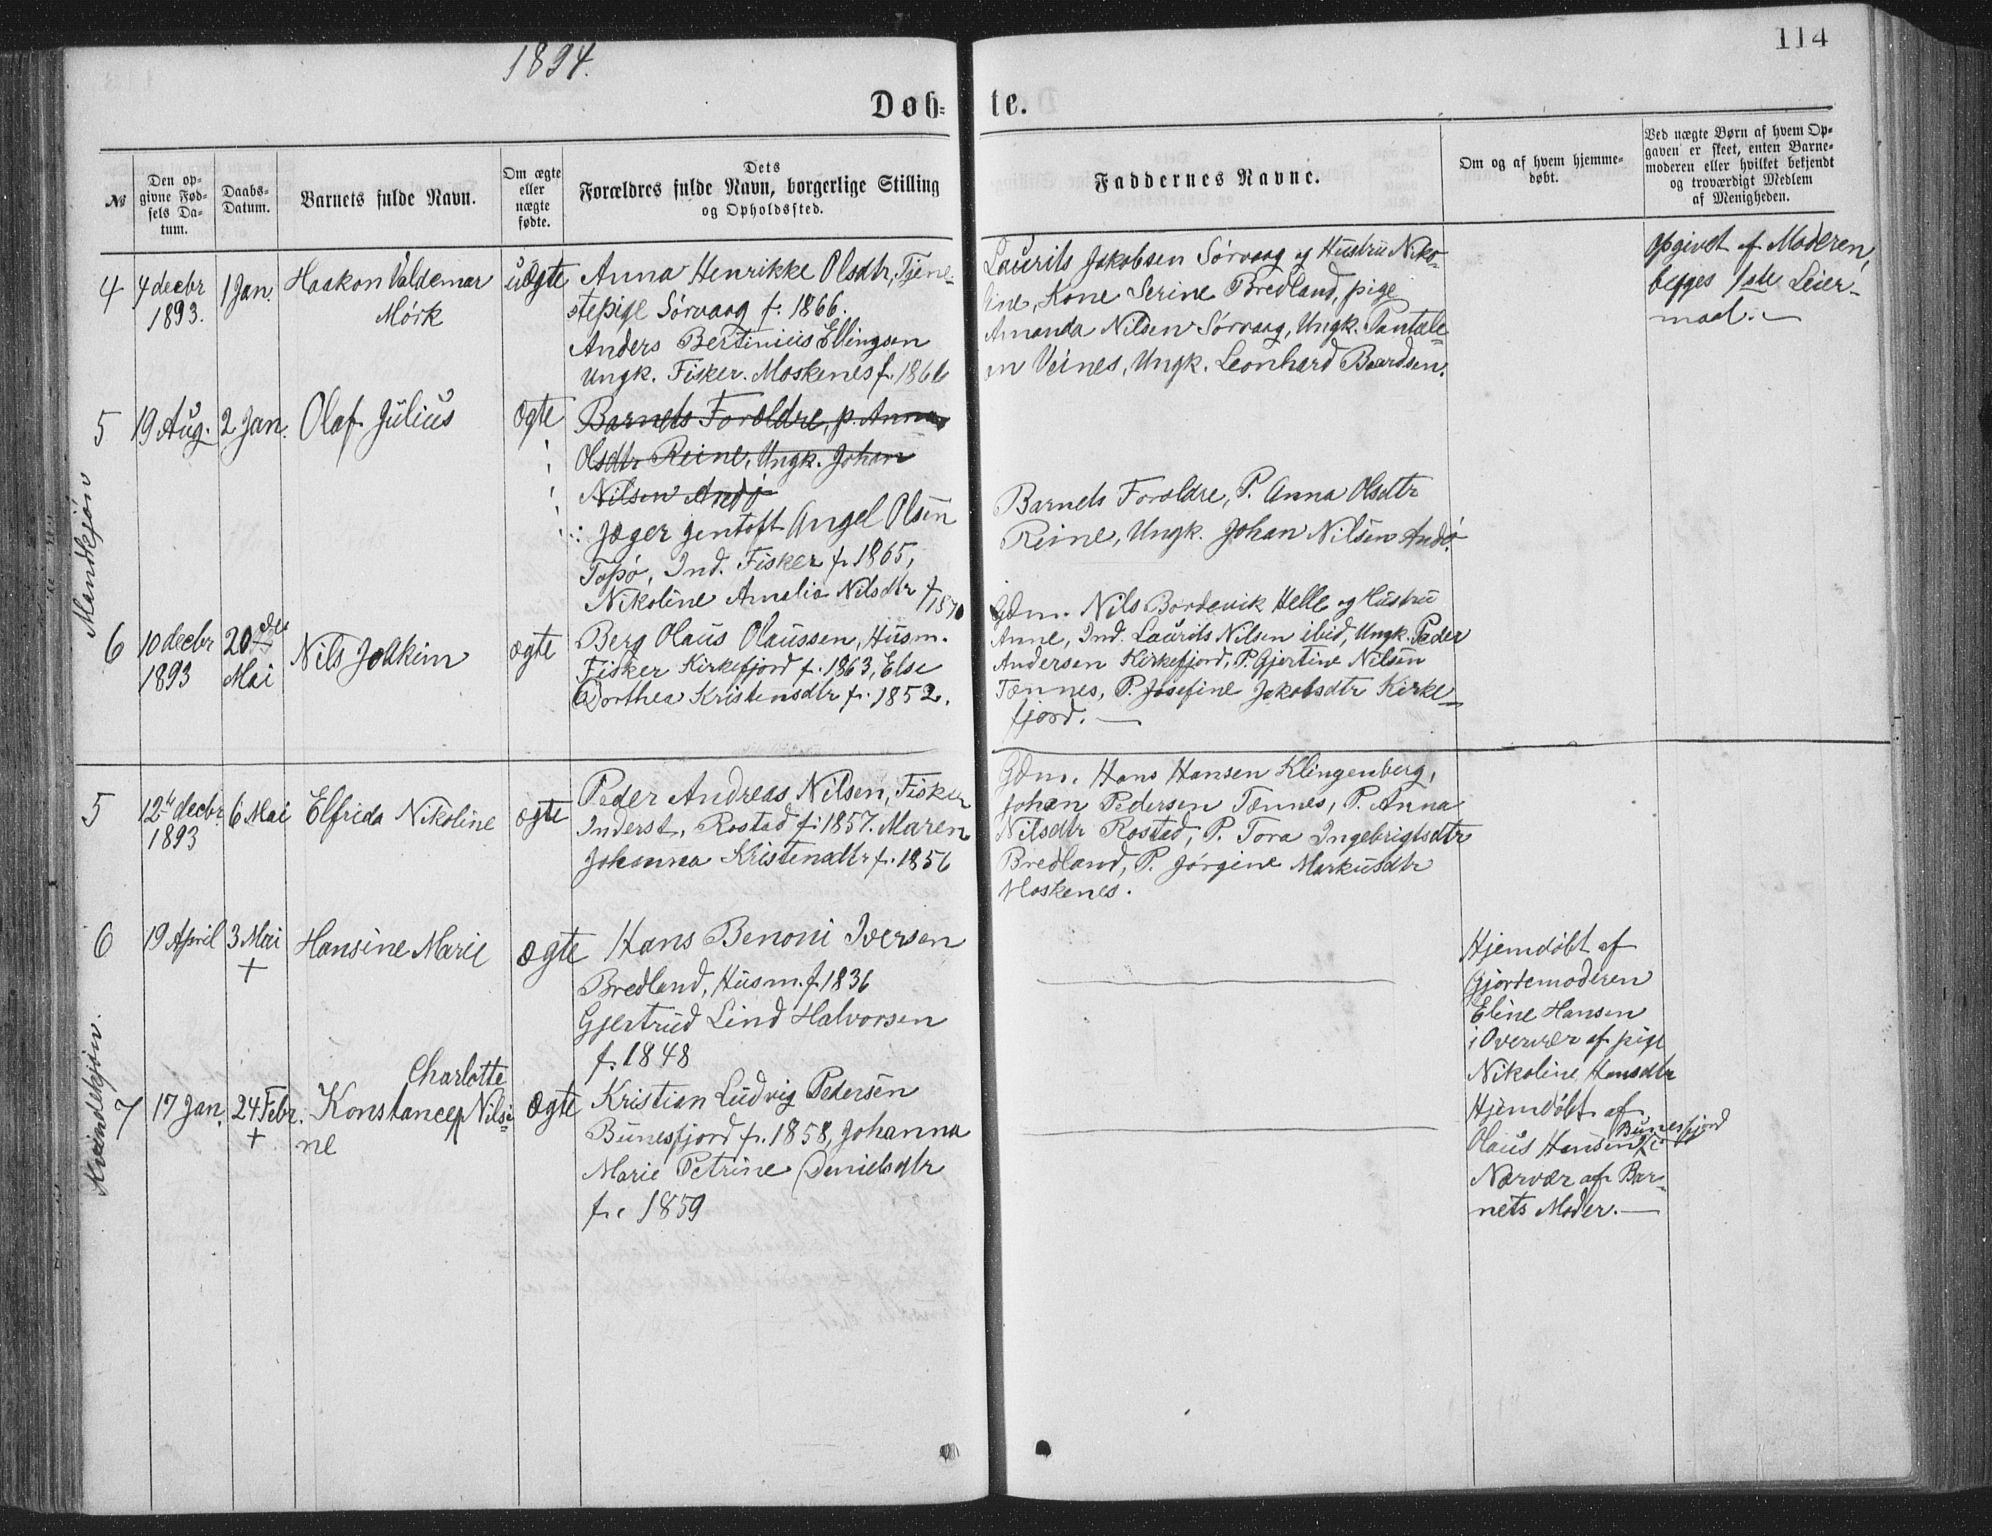 1894.
114
Døb-
te.
№
Den op-
givne Fød-
sels Da-
tum.
Daabs-
Datum.
Barnets fulde Navn.
Om ægte
eller
uægte
fødte.
Dets
Forældres fulde Navn, borgerlige Stilling
og Opholdssted.
Faddernes Navne.
Om og af hvem hjemme-
døbt.
Ved uægte Børn af hvem Op-
gaven er skeet, enten Barne-
moderen eller hvilket bekjendt
og troværdigt Medlem
af Menigheden.
Mandkjøn
4
4 decbr
1893.
1 Jan.
Haakon Valdemar
Mörk
uægte
Anna Henrikke Olsdtr, Tjene-
stepige Sörvaag f. 1866.
Anders Bertinius Ellingsen
Ungk. Fisker. Moskenes f. 1866
Laurits Jakobsen Sörvaag og Hustru Niko-
line, Kone Serine Bredland, pige
Amanda Nilsen Sörvaag, Ungk. Pantale-
on Veines, Ungk. Leonhard Baardsen.
Opgivet af Moderen,
begges 1ste Leier-
maal. —
5
19 Aug.
2 Jan.
Olaf Julius
ægte
Barnets Forældre, p. Anna
Olsdtr Reine, Ungk. Johan
Nilsen Andö
Jæger Jentoft Angel Olsen
Topö, Ind. Fisker f. 1865,
Nikoline Amalia Nilsdtr f 1870
Barnets Forældre, P. Anna Olsdtr
Reine, Ungk. Johan Nilsen Andö.
6
10 decbr
1893
20
Mai
Nils Joakim
ægte
Berg Olaus Olaussen, Husm.
Fisker Kirkefjord f. 1863, Else
Dorthea Kristensdtr f. 1852.
Gdm. Nils Bordevik Helle og Hustru
Anne, Ind. Laurits Nilsen ibid, Ungk. Peder
Andersen Kirkefjord, P. Gjertine Nilsen
Tennes, P. Josefine Jakobsdtr Kirke-
fjord. —
Kvindekjön.
5
12te decbr.
1893
6 Mai
Elfrida Nikoline
ægte
Peder Andreas Nilsen, Fisker
Inderst, Rostad f. 1857. Maren
Johanna Kristensdtr f. 1856
Gdm. Hans Hansen Klingenberg,
Johan Pedersen Tennes, P. Anna
Nilsdtr Rostad, P. Tora Ingebrigtsdtr
Bredland, P. Jörgine Markusdtr
Moskenes.
6
19 April
3 Mai
+
Hansine Marie
ægte
Hans Benoni Iversen
Bredland, Husm. f. 1836
Gjertrud Lind Halvorsen
f. 1848
Hjemdöbt af
Gjordemoderen
Eline Hansen
i Overvær af pige
Nikoline Hansdtr
7
17 Jan.
24 Febr.
+
Charlotte
Konstance Nilsi-
ne
ægte
Kristian Ludvig Pedersen
Bunesfjord f. 1858, Johanna
Marie Petrine Danielsdtr
f. 1859
Hjemdöbt af
Bunesfjord
Olaus Hansen i
Nærvær af Bar-
nets Moder. —